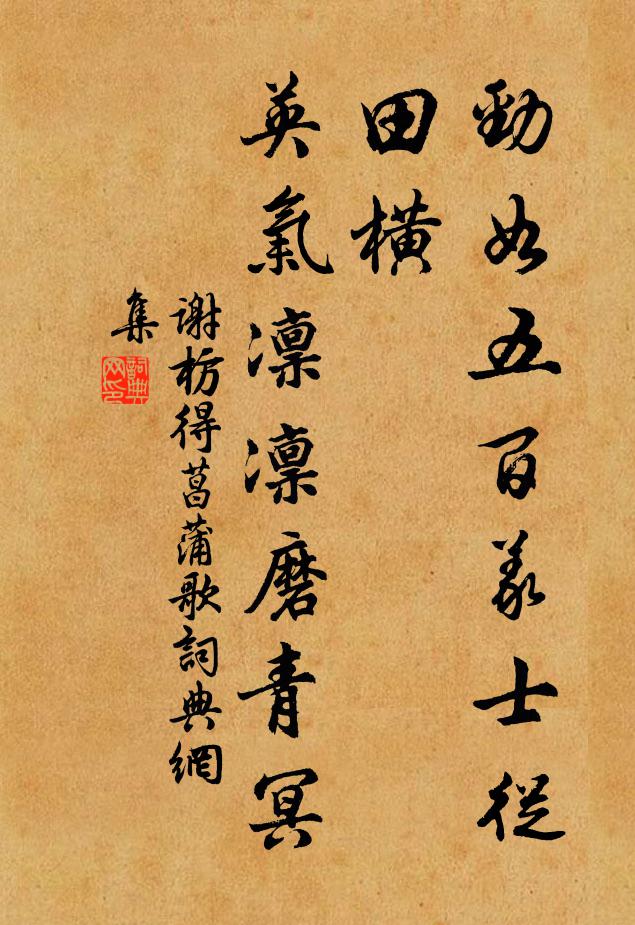 勁如五百義士從
田橫
英氣凜凜磨青冥
謝枋得菖蒲歌詞典網
集
詞典
网印